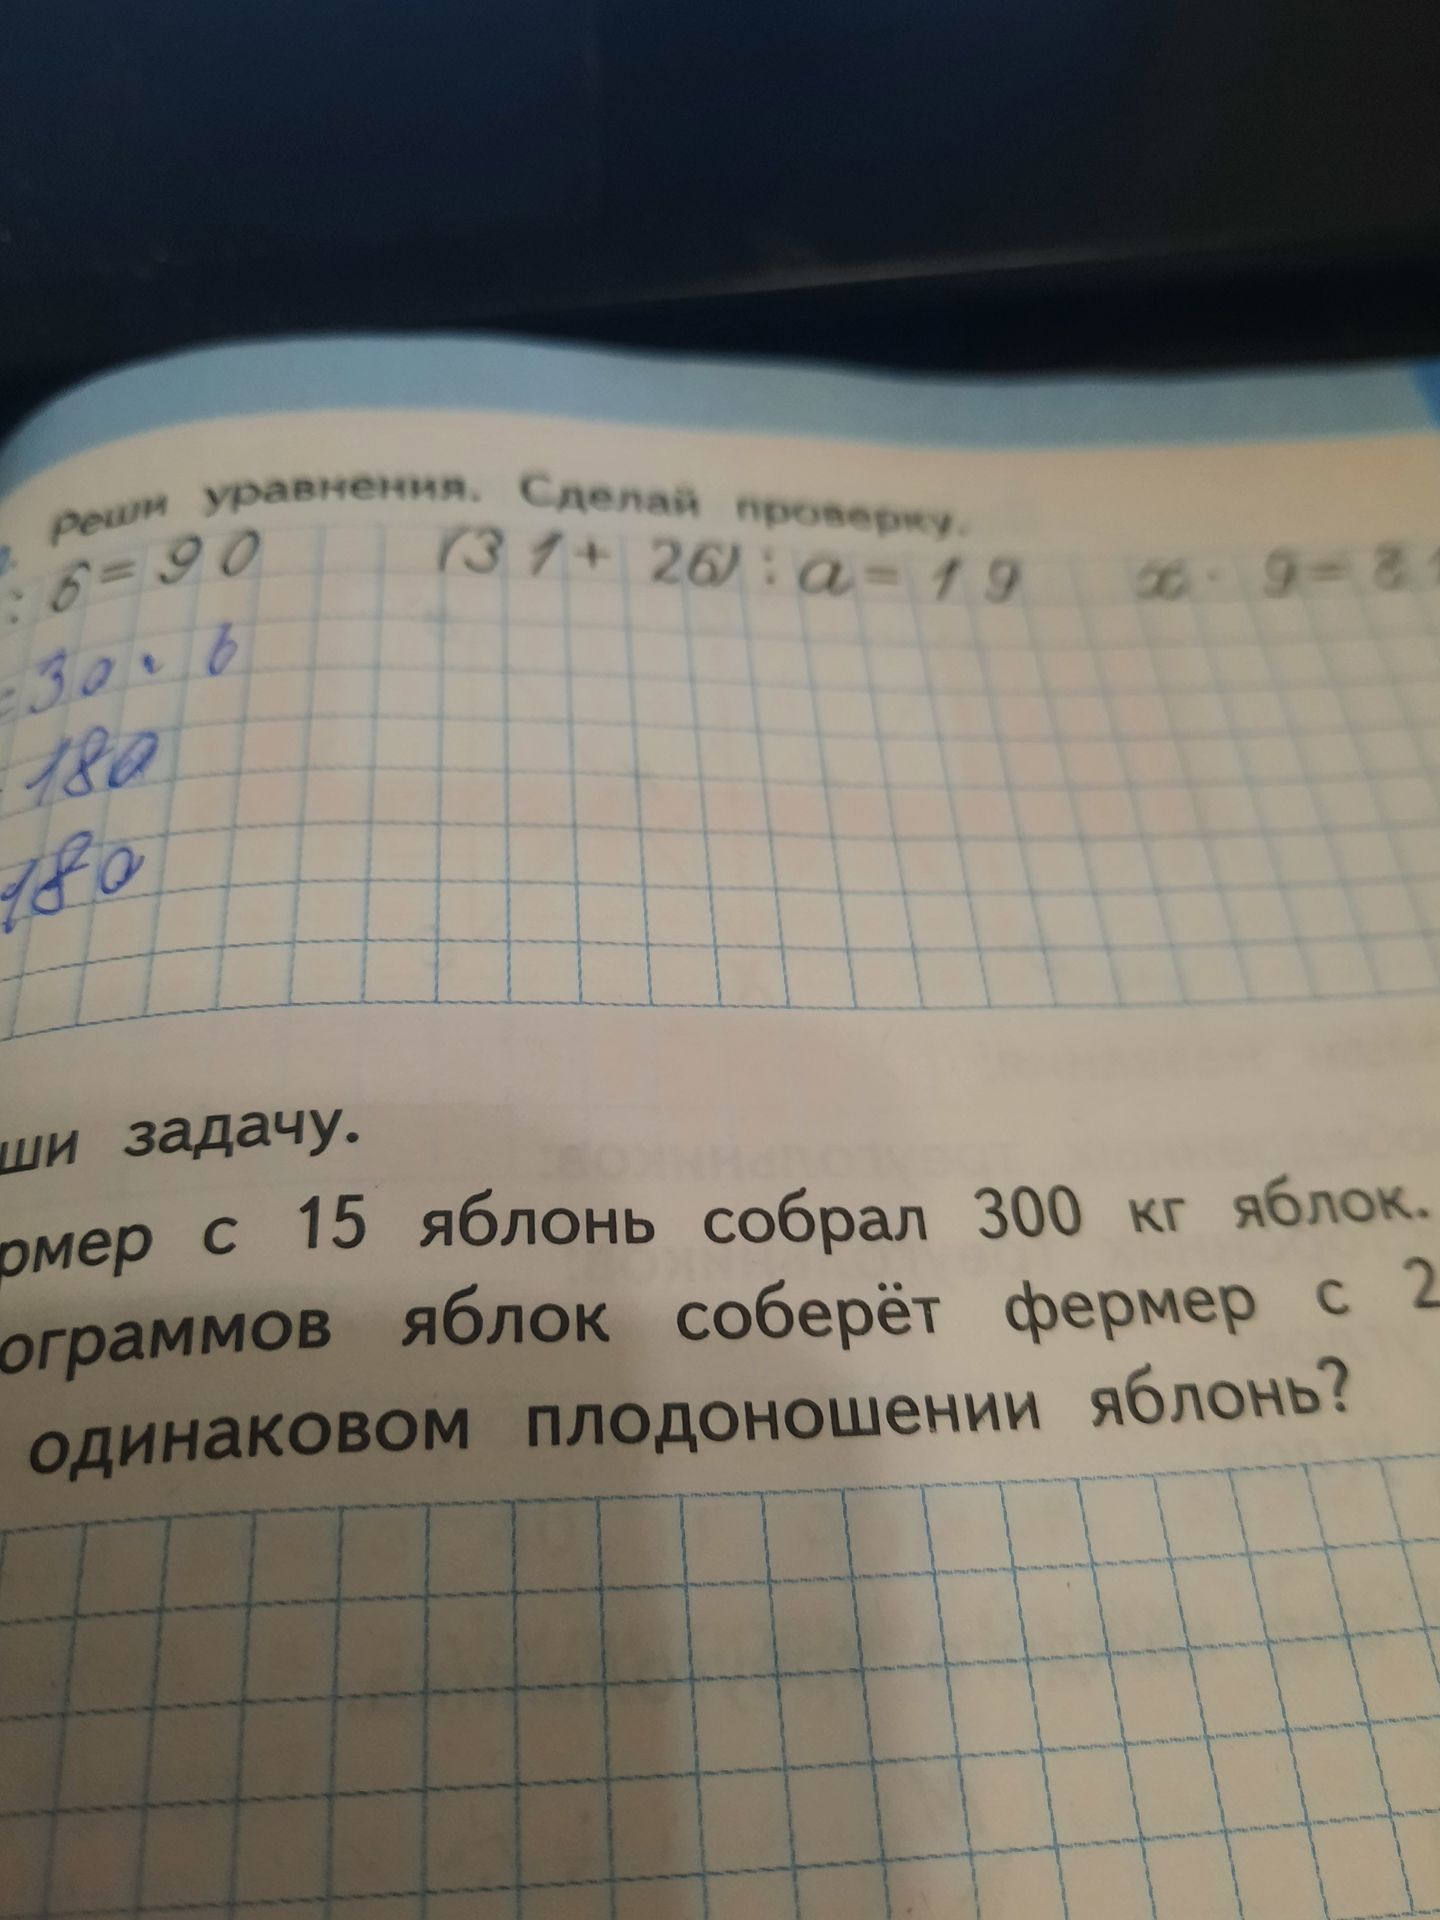 Реши уравнения. Сделай проверку.
: 6 = 90 (31 + 26) : a = 19 x · 9 = 81
= 30 · 6
180
180
ши задачу.
рмер с 15 яблонь собрал 300 кг яблок.
ограммов яблок соберёт фермер с 2
одинаковом плодоношении яблонь?